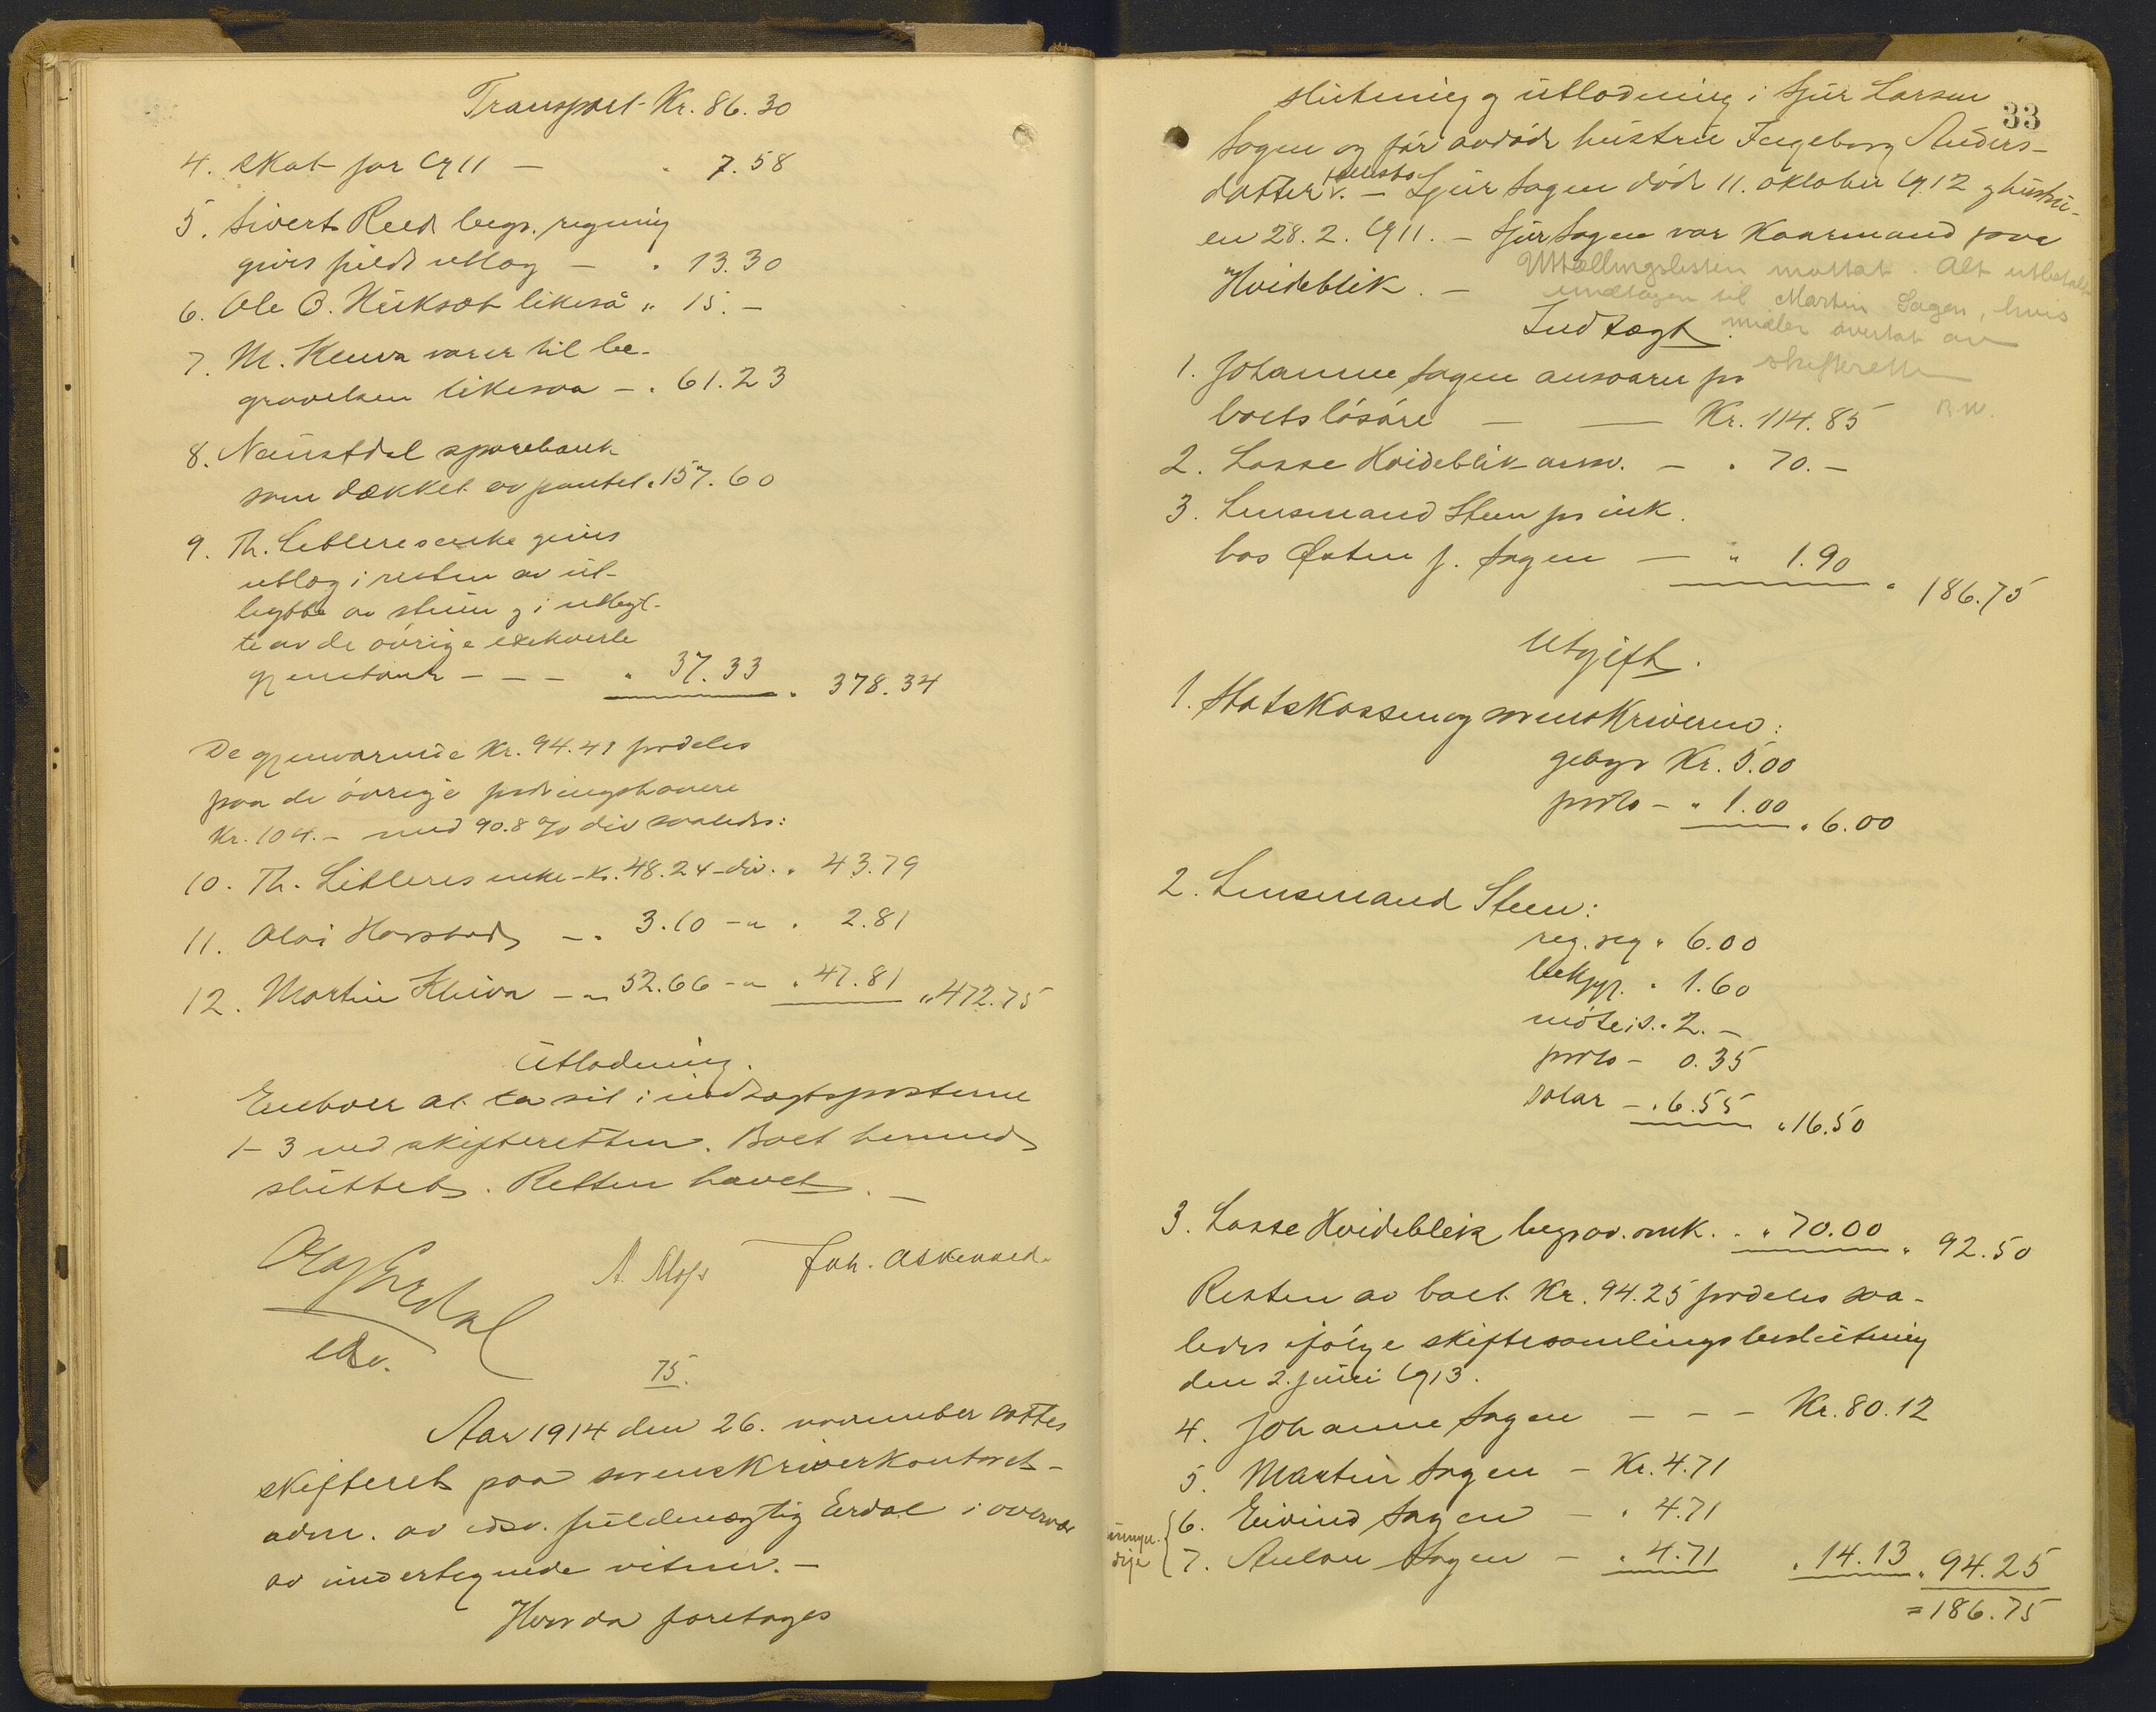 Transport Kr. 86.30
4. Skat for 1911 — " 7.58
5. Sivert Reed begr. regning
givis fuldt utlæg — " 13.30
6. Ole O. likeså " 15. —
7. M. Kleiva varer til be-
gravelsen likesaa — " 61.23
8. Naustdal sparebank
som dækket av pantet " 157.60
9. Th. Libleres enke givis
utlæg i resten av ut-
lagte av og i utlag-
te av de øvrige exekverte
gjenstande — — — " 37.33 " 378.34
De gjenværende Kr. 94.41 fordeles
paa de øvrige fordringshavere
Kr. 104.— med 90.8 % div saaledes:
10. Th. Libleres enke - kr. 48.24 - div. " 43.79
11. Olai Horstad — " 3.10 — " " 2.81
12. Martin Kleiva — " 52.66 — " " 47.81 " 472.75
Utlodning.
Enhver at ta sit i indtægtsposterne
1–3 ved skifteretten. Boet hermed
sluttet. Retten hævet. —
Olaf Erdal
A. Moss Joh. Askevold
edsv.
75.
Aar 1914 den 26. november sattes
skifteret paa sorenskriverkontoret -
adm. av edsv. fuldmægtig Erdal i overvær
av undertegnede vitner. —
Hvor da foretages
33
slutning og utlodning i Sjur Larsen
Sagen og før avdøde hustru Ingeborg Anders-
datters v. — Sjur Sagen døde 11. oktober 1912 og hustru-
en 28. 2. 1911. — Sjur Sagen var Kaarmand paa
Hvideblik. —
Uttællingslisten mottat. Alt utbetalt
undtagen til Martin Sagen, hvis
midler overtat av
skifteretten
Indtægt.
1. Johanne Sagen ansvarer for
boets løsøre — — Kr. 114.85
2. Lasse Hvideblik ansv. — " 70. —
3. Lensmand Steen for ink.
hos Østen J. Sagen — " 1.90 " 186.75
Utgift.
1. Statskassen og sorenskriveren:
gebyr Kr. 5.00
proto — " 1.00 " 6.00
2. Lensmand Steen:
reg. reg " 6.00
bekjgj. " 1.60
møte i s. " 2. —
proto — 0.35
Salar — " 6.55 " 16.50
3. Lasse Hvideblik begrav. omk. " 70.00 " 92.50
Resten av boet Kr. 94.25 fordeles saa-
ledes ifølge skiftesamlingsbeslutning
den 2. juni 1913.
4. Johanne Sagen — — — Kr. 80.12
5. Martin Sagen — Kr. 4.71
umyn-
dige
6. Eivind Sagen — " 4.71
7. Anton Sagen — " 4.71 " 14.13 " 94.25
= 186.75